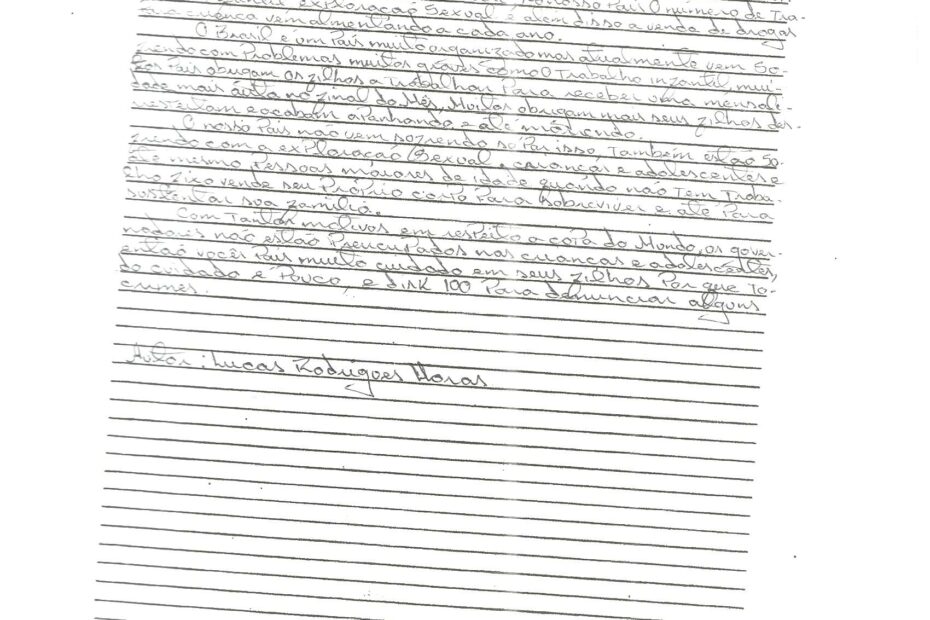 exploração Sexual e alem disso a venda de drogas
vem almentando a cada ano.
O Brasil é um País muito organizado mas atualmente vem So-
zrendo com Problemas muitos graves como o Trabalho inzantil, mui-
Tos Pais obrigam os zilhos a Trabalhar Para receber uma mensali-
dade mais auta no zinal do Mês, Muitos obrigam mais seus zilhos des-
e acabam apanhando e até morrendo.
O nosso País não vem sozrendo só Por isso, Também estão so-
zrendo com a exPloração Sexual, crianças e adolescentes e
até mesmo Pessoas maiores de idade quando não Tem Traba-
lho zixo vende seu Próprio corpo Para Sobreviver e até Para
sustentar sua zamília.
Com Tantos motivos em respeito a copa do Mundo, os gover-
nadores não estão Preucupados nas crianças e adolescentes,
então vocês Pais muito cuidado em seus zilhos Por que To-
do cuidado é Pouco, e disk 100 Para denunciar alguns
crimes.
Autor: Lucas Rodrigues Moras